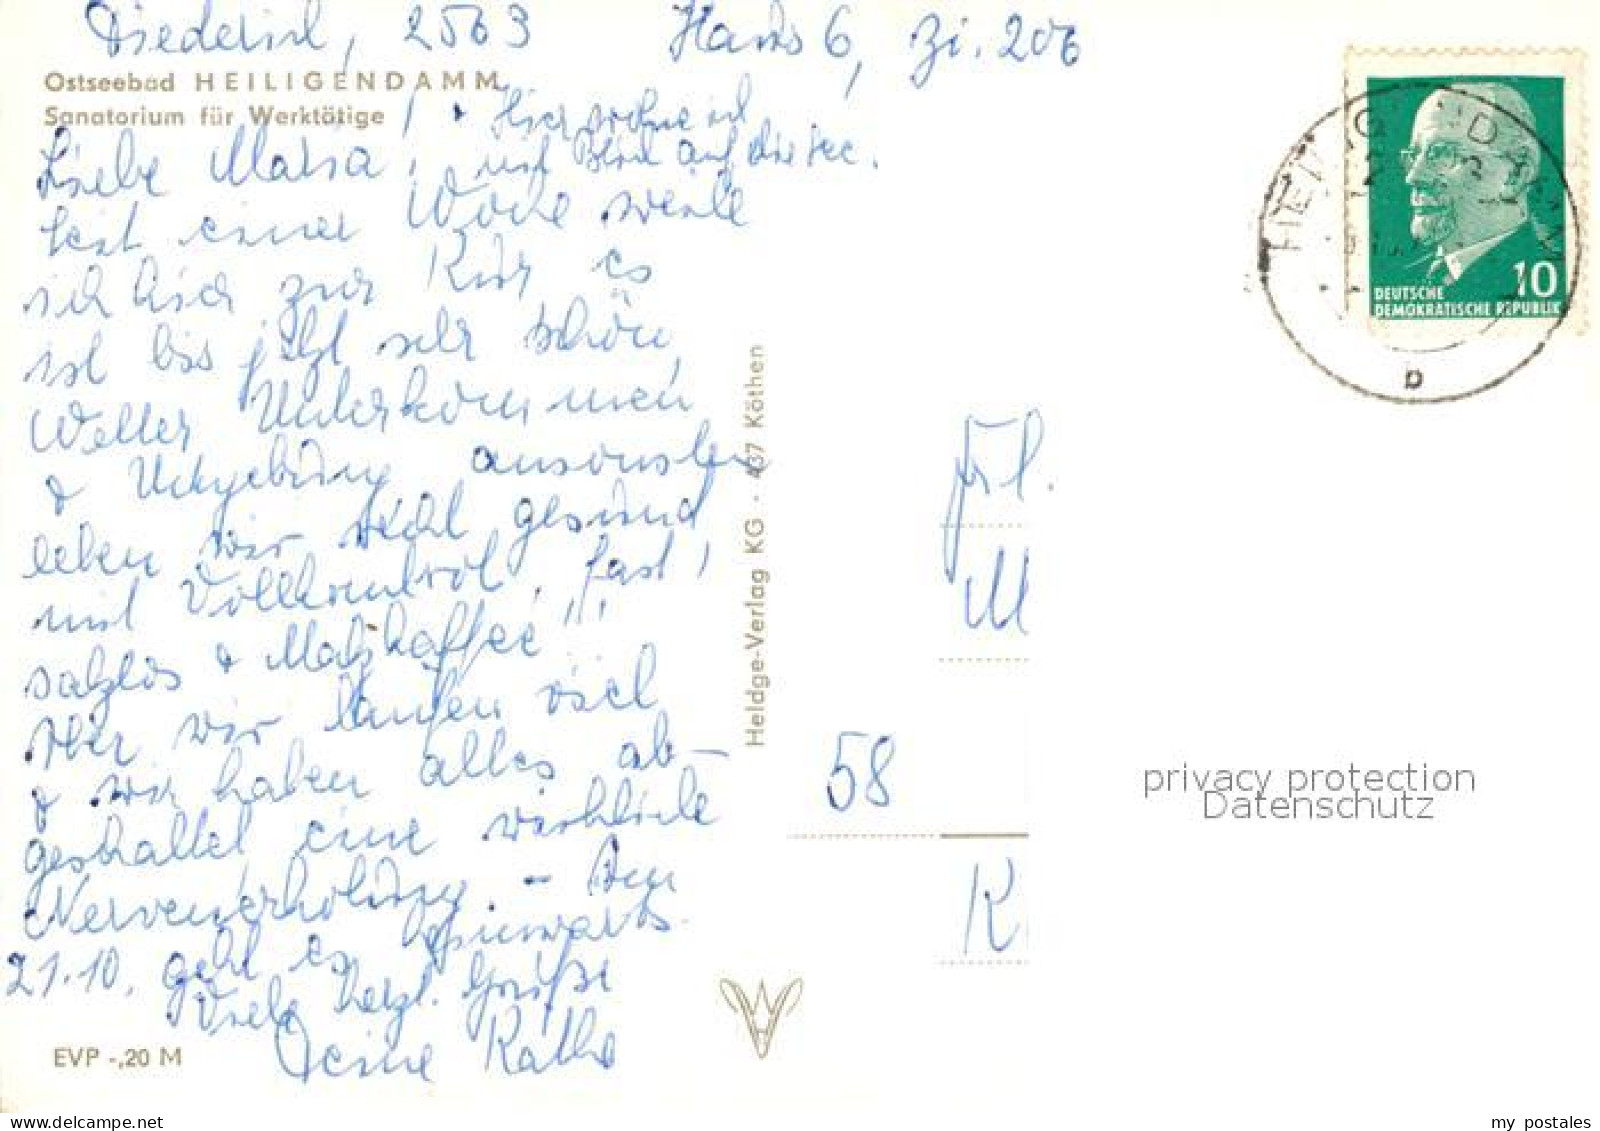 2563 Haus 6, Zi. 206
Ostseebad HEILIGENDAMM
Sanatorium für Werktätige
Hier wohne ich
mit Blick auf die See.
Liebe Maria!
seit einer Woche weile
ich hier zur Kur es
ist bis jetzt sehr schön,
Wetter Unterkommen
& Umgebung ansonsten
leben wir recht gesund
mit Vollkornbrot, fast
salzlos & Malzkaffee!!!
Aber wir laufen viel
& wir haben alles ab-
geschaltet eine wirkliche
Nervenerholung. - Am
21.10. geht es heimwärts.
Viele herzl. Grüße
Deine Käthe
EVP -,20 M
Heldge-Verlag KG · 437 Köthen
Frl.
M
58
K
HEILIGENDAMM
b
10
DEUTSCHE
DEMOKRATISCHE REPUBLIK
privacy protection
Datenschutz
my postales